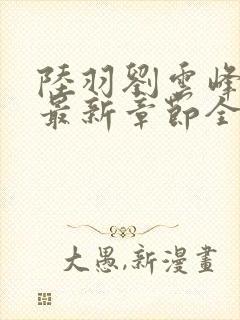 陸羽劉雲峰
最新章節全
大愚,新漫畫